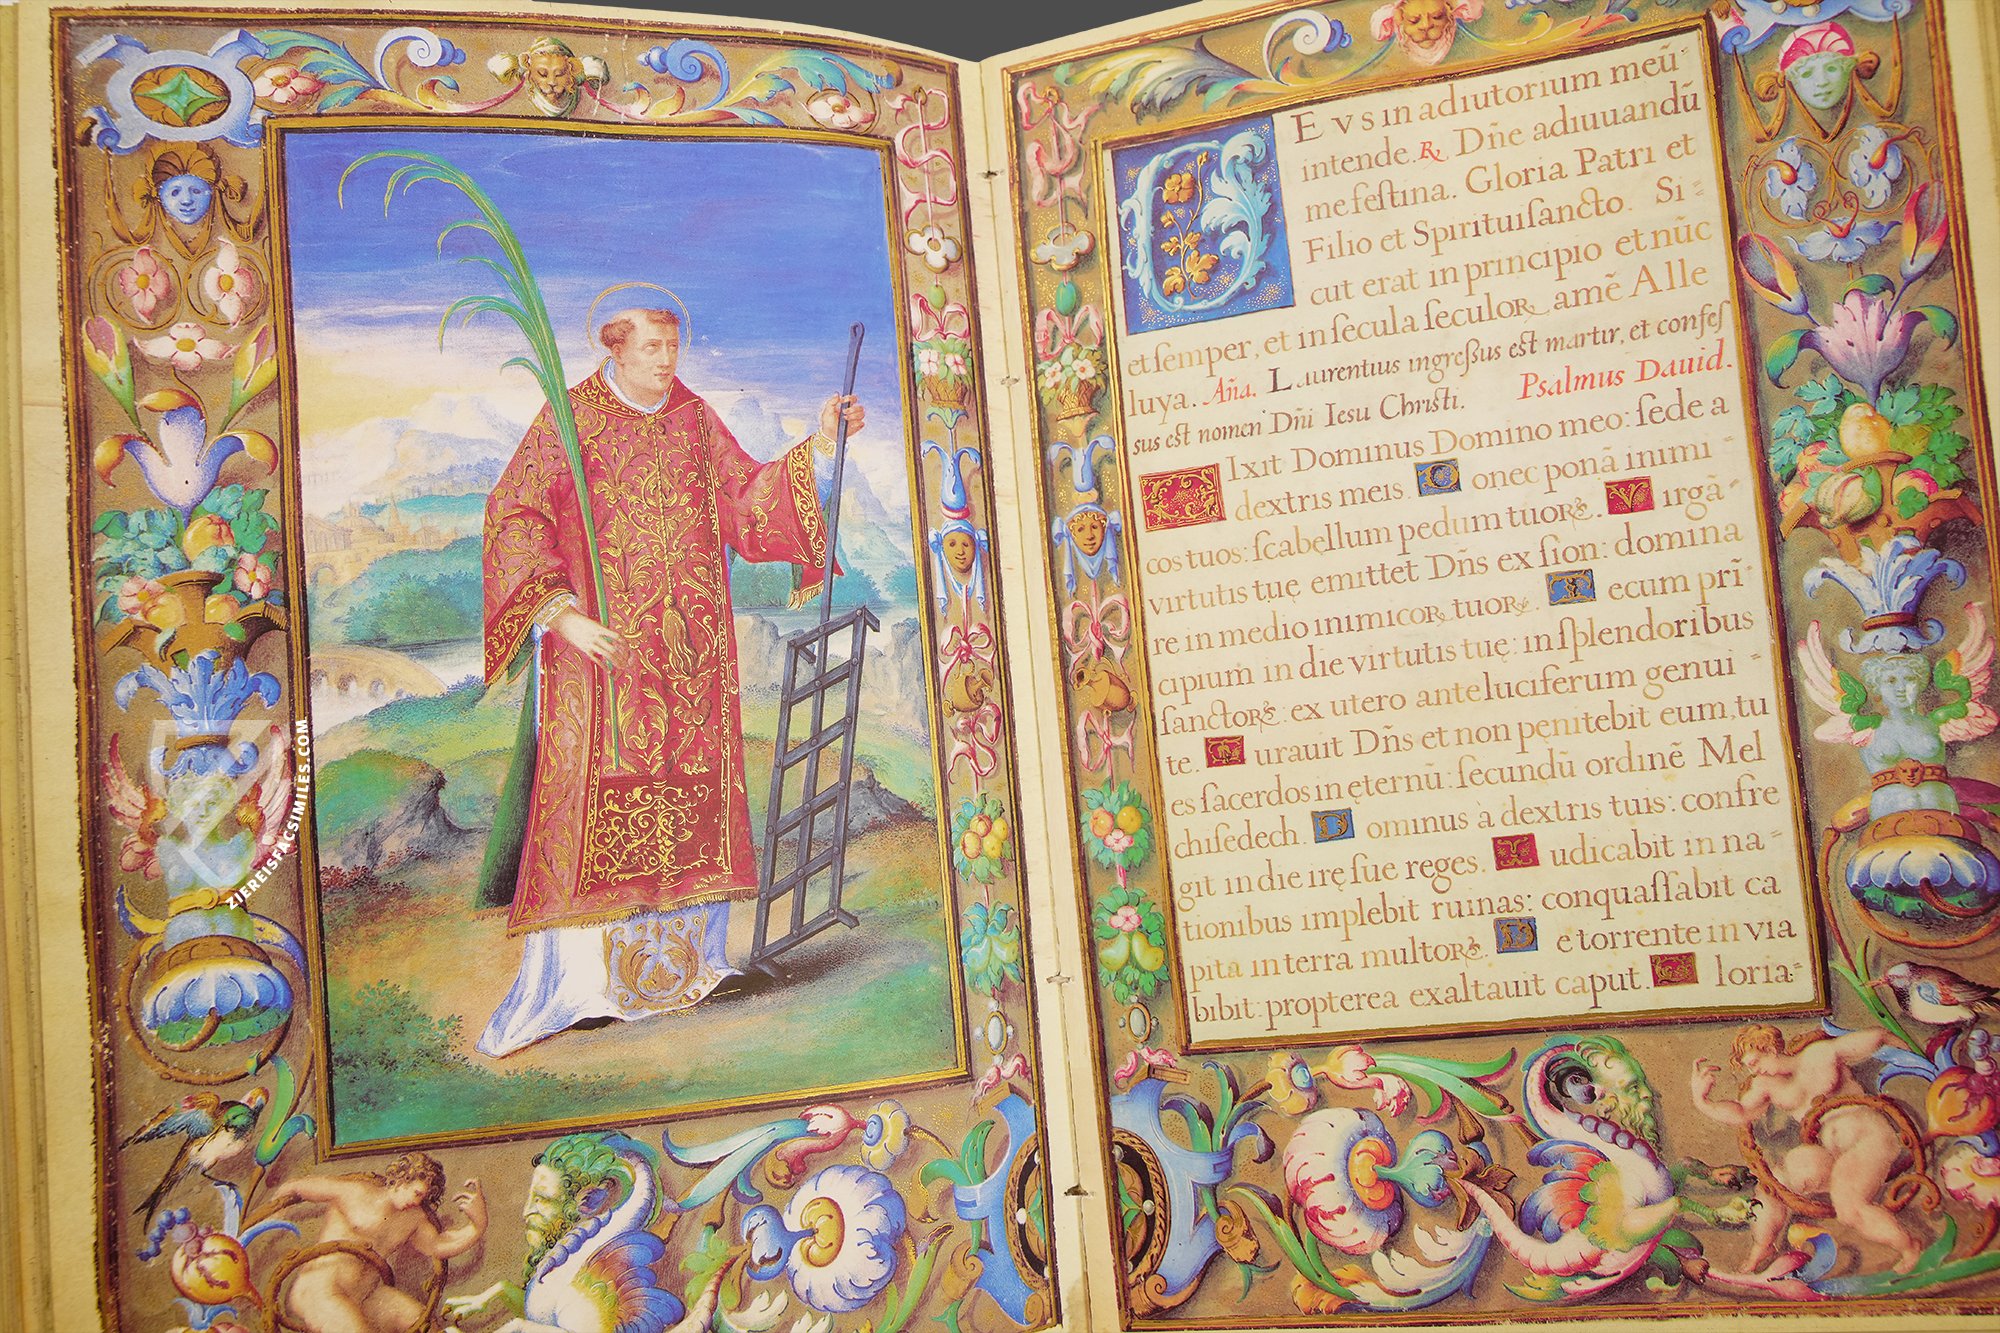 ZIEREISFACSIMILES.COM
DEVS in adiutorium meũ
intende. R̷ Dñe adiuuandũ
me feſtina. Gloria Patri et
Filio et Spirituiſancto. Si⸗
cut erat in principio et nũc
et ſemper, et in ſecula ſeculoꝝ amẽ Alle
luya. Aña. Laurentius ingreſsus eſt martir, et confeſ
sus eſt nomen Dñi Iesu Chriſti. Psalmus Dauid.
DIxit Dominus Domino meo: ſede a
dextris meis. Donec ponã inimi⸗
cos tuos: ſcabellum pedum tuoꝝ. Virgã⸗
virtutis tuę emittet Dñs ex ſion: domina
re in medio inimicoꝝ tuoꝝ. Tecum prĩ⸗
cipium in die virtutis tuę: in ſplendoribus
ſanctoꝝ: ex utero ante luciferum genui⸗
te. Iurauit Dñs et non penitebit eum, tu
es ſacerdos in ęternũ: ſecundũ ordinẽ Mel
chiſedech. Dominus à dextris tuis: confre
git in die irę ſue reges. Iudicabit in na⸗
tionibus implebit ruinas: conquaſſabit ca
pita in terra multoꝝ. De torrente in via
bibit: propterea exaltauit caput. Gloria⸗